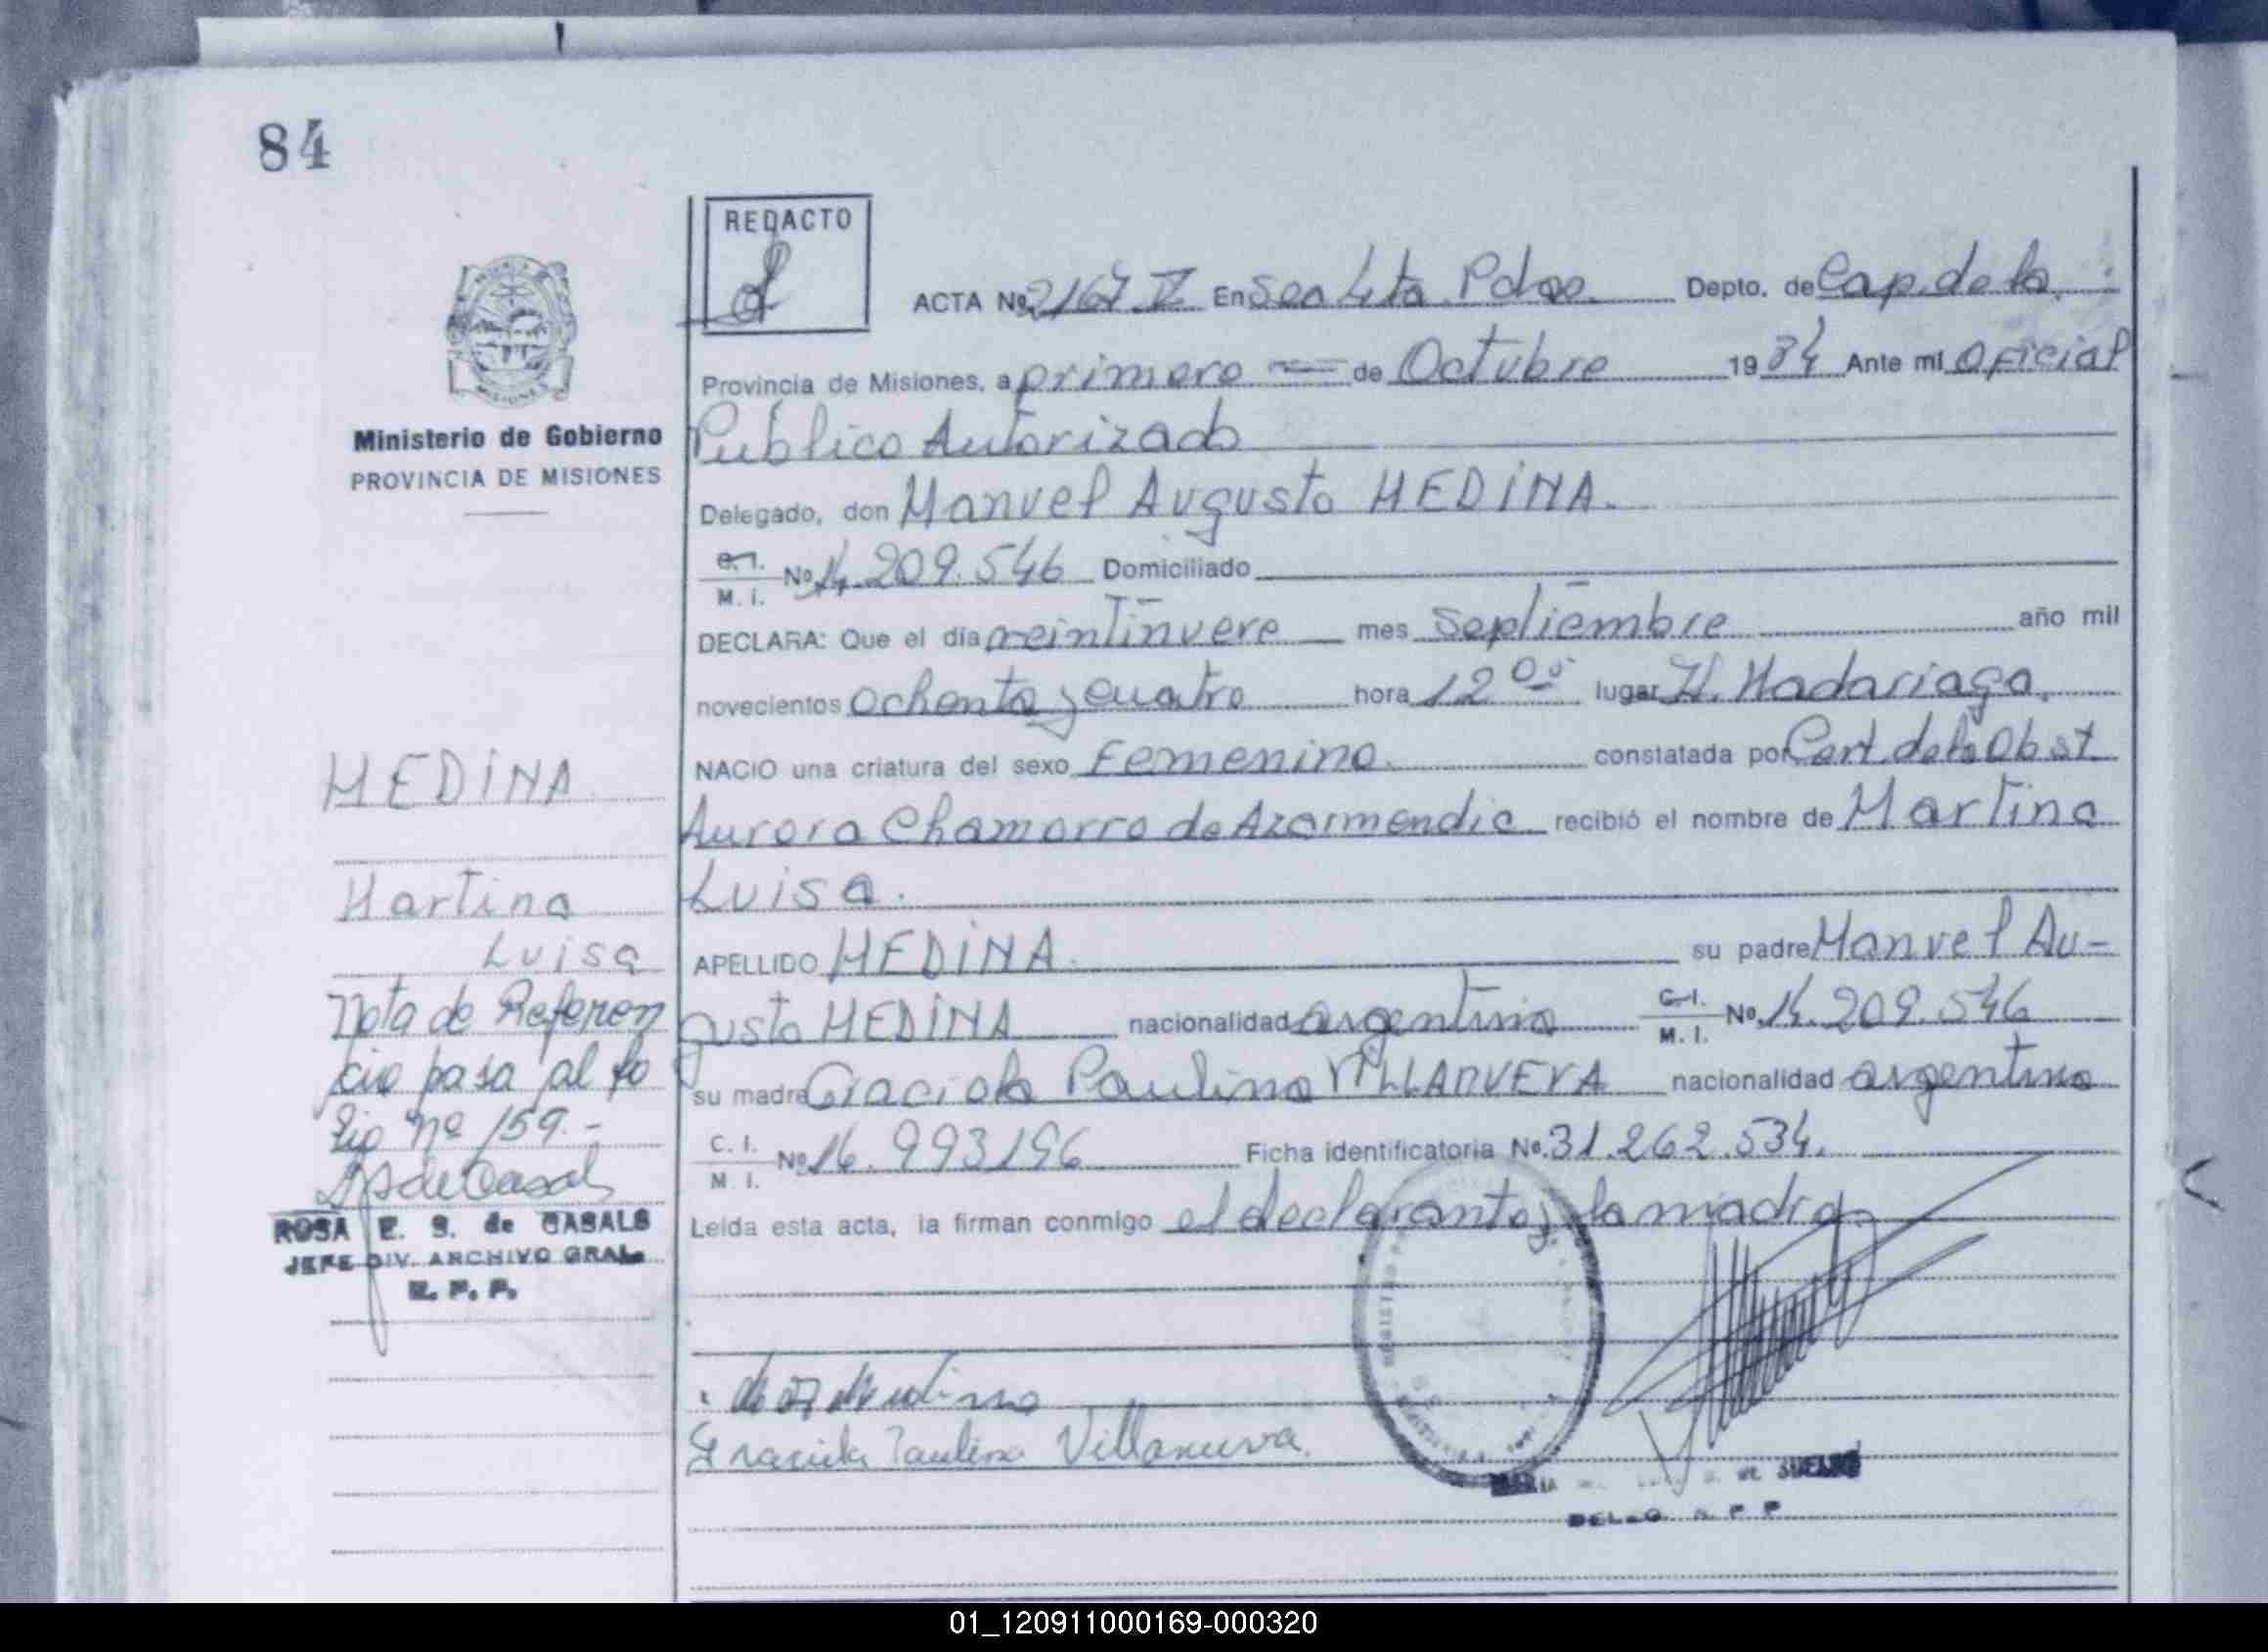 84
REDACTO
ACTA Nº 2167 I En Sec 4ta Pdas. Depto. de Cap. de la
Provincia de Misiones, a primero de Octubre 1984 Ante mi Oficial
Publico Autorizado
Ministerio de Gobierno
PROVINCIA DE MISIONES
Delegado, don Manuel Augusto MEDINA.
C.I. M. I. Nº 14.209.546 Domiciliado
DECLARA: Que el día veintinueve mes septiembre año mil
novecientos ochenta y cuatro hora 12 00 lugar H. Madariaga.
NACIO una criatura del sexo Femenino. constatada por Cert. de la Obst
Aurora Chamorro de Azarmendia recibió el nombre de Martina
Luisa.
APELLIDO MEDINA. su padre Manuel Au-
gusto MEDINA nacionalidad argentina C.I. M. I. Nº 14.209.546
su madre Graciela Paulina VILLANUEVA nacionalidad argentina
C. I. M. I. Nº 16.993196 Ficha identificatoria Nº 31.262.534.
Leida esta acta, la firman conmigo el declarante y la madre
MEDINA.
Martina
Luisa
Nota de Referen
cia pasa al fo
lio nº 159.-
ROSA E. S. de CASALS
JEFE DIV. ARCHIVO GRAL.
R. P. P.
Medina
Graciela Paulina Villanueva.
MARIA
R. P. P.
01_120911000169-000320